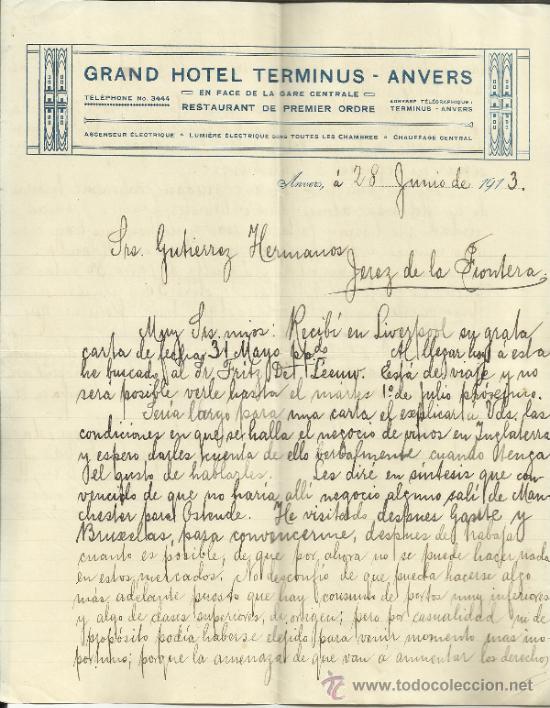 GRAND HOTEL TERMINUS - ANVERS
EN FACE DE LA GARE CENTRALE
TÉLÉPHONE No. 3444
RESTAURANT DE PREMIER ORDRE
ADRESSE TÉLÉGRAPHIQUE:
TERMINUS - ANVERS
ASCENSEUR ÉLECTRIQUE * LUMIÈRE ÉLECTRIQUE DANS TOUTES LES CHAMBRES * CHAUFFAGE CENTRAL
Anvers, á 28 Junio de 1913.
Srs. Gutierrez Hermanos
Jerez de la Frontera.
Muy Srs. mios: Recibí en Liverpool su grata
carta de fecha 31 Mayo ppdo. Al llegar hoy a esta
he buscado al Sr Fritz Det Leeuw. Está de viaje y no
será posible verle hasta el martes 1º de julio próximo.
Seria largo para una carta el explicar a Vds. las
condiciones en que se halla el negocio de vinos en Inglaterra
y espero darles cuenta de ello verbalmente cuando tenga
el gusto de hablarles. Les diré en síntesis que con-
vencido de que no haria alli negocio alguno sali de Man-
chester para Ostende. He visitado despues Gante y
Bruxelas, para convencerme, despues de trabajar
cuanto es posible, de que por ahora no se puede hacer nada
en estos mercados. No desconfio de que pueda hacerse algo
más adelante puesto que hay consumo de portos muy inferiores
y algo de clases superiores, de origen; pero por casualidad ni de
propósito podia haberse elegido para venir momento mas ino-
portuno; porque la amenaza de que van á aumentar los derechos
www.todocoleccion.net